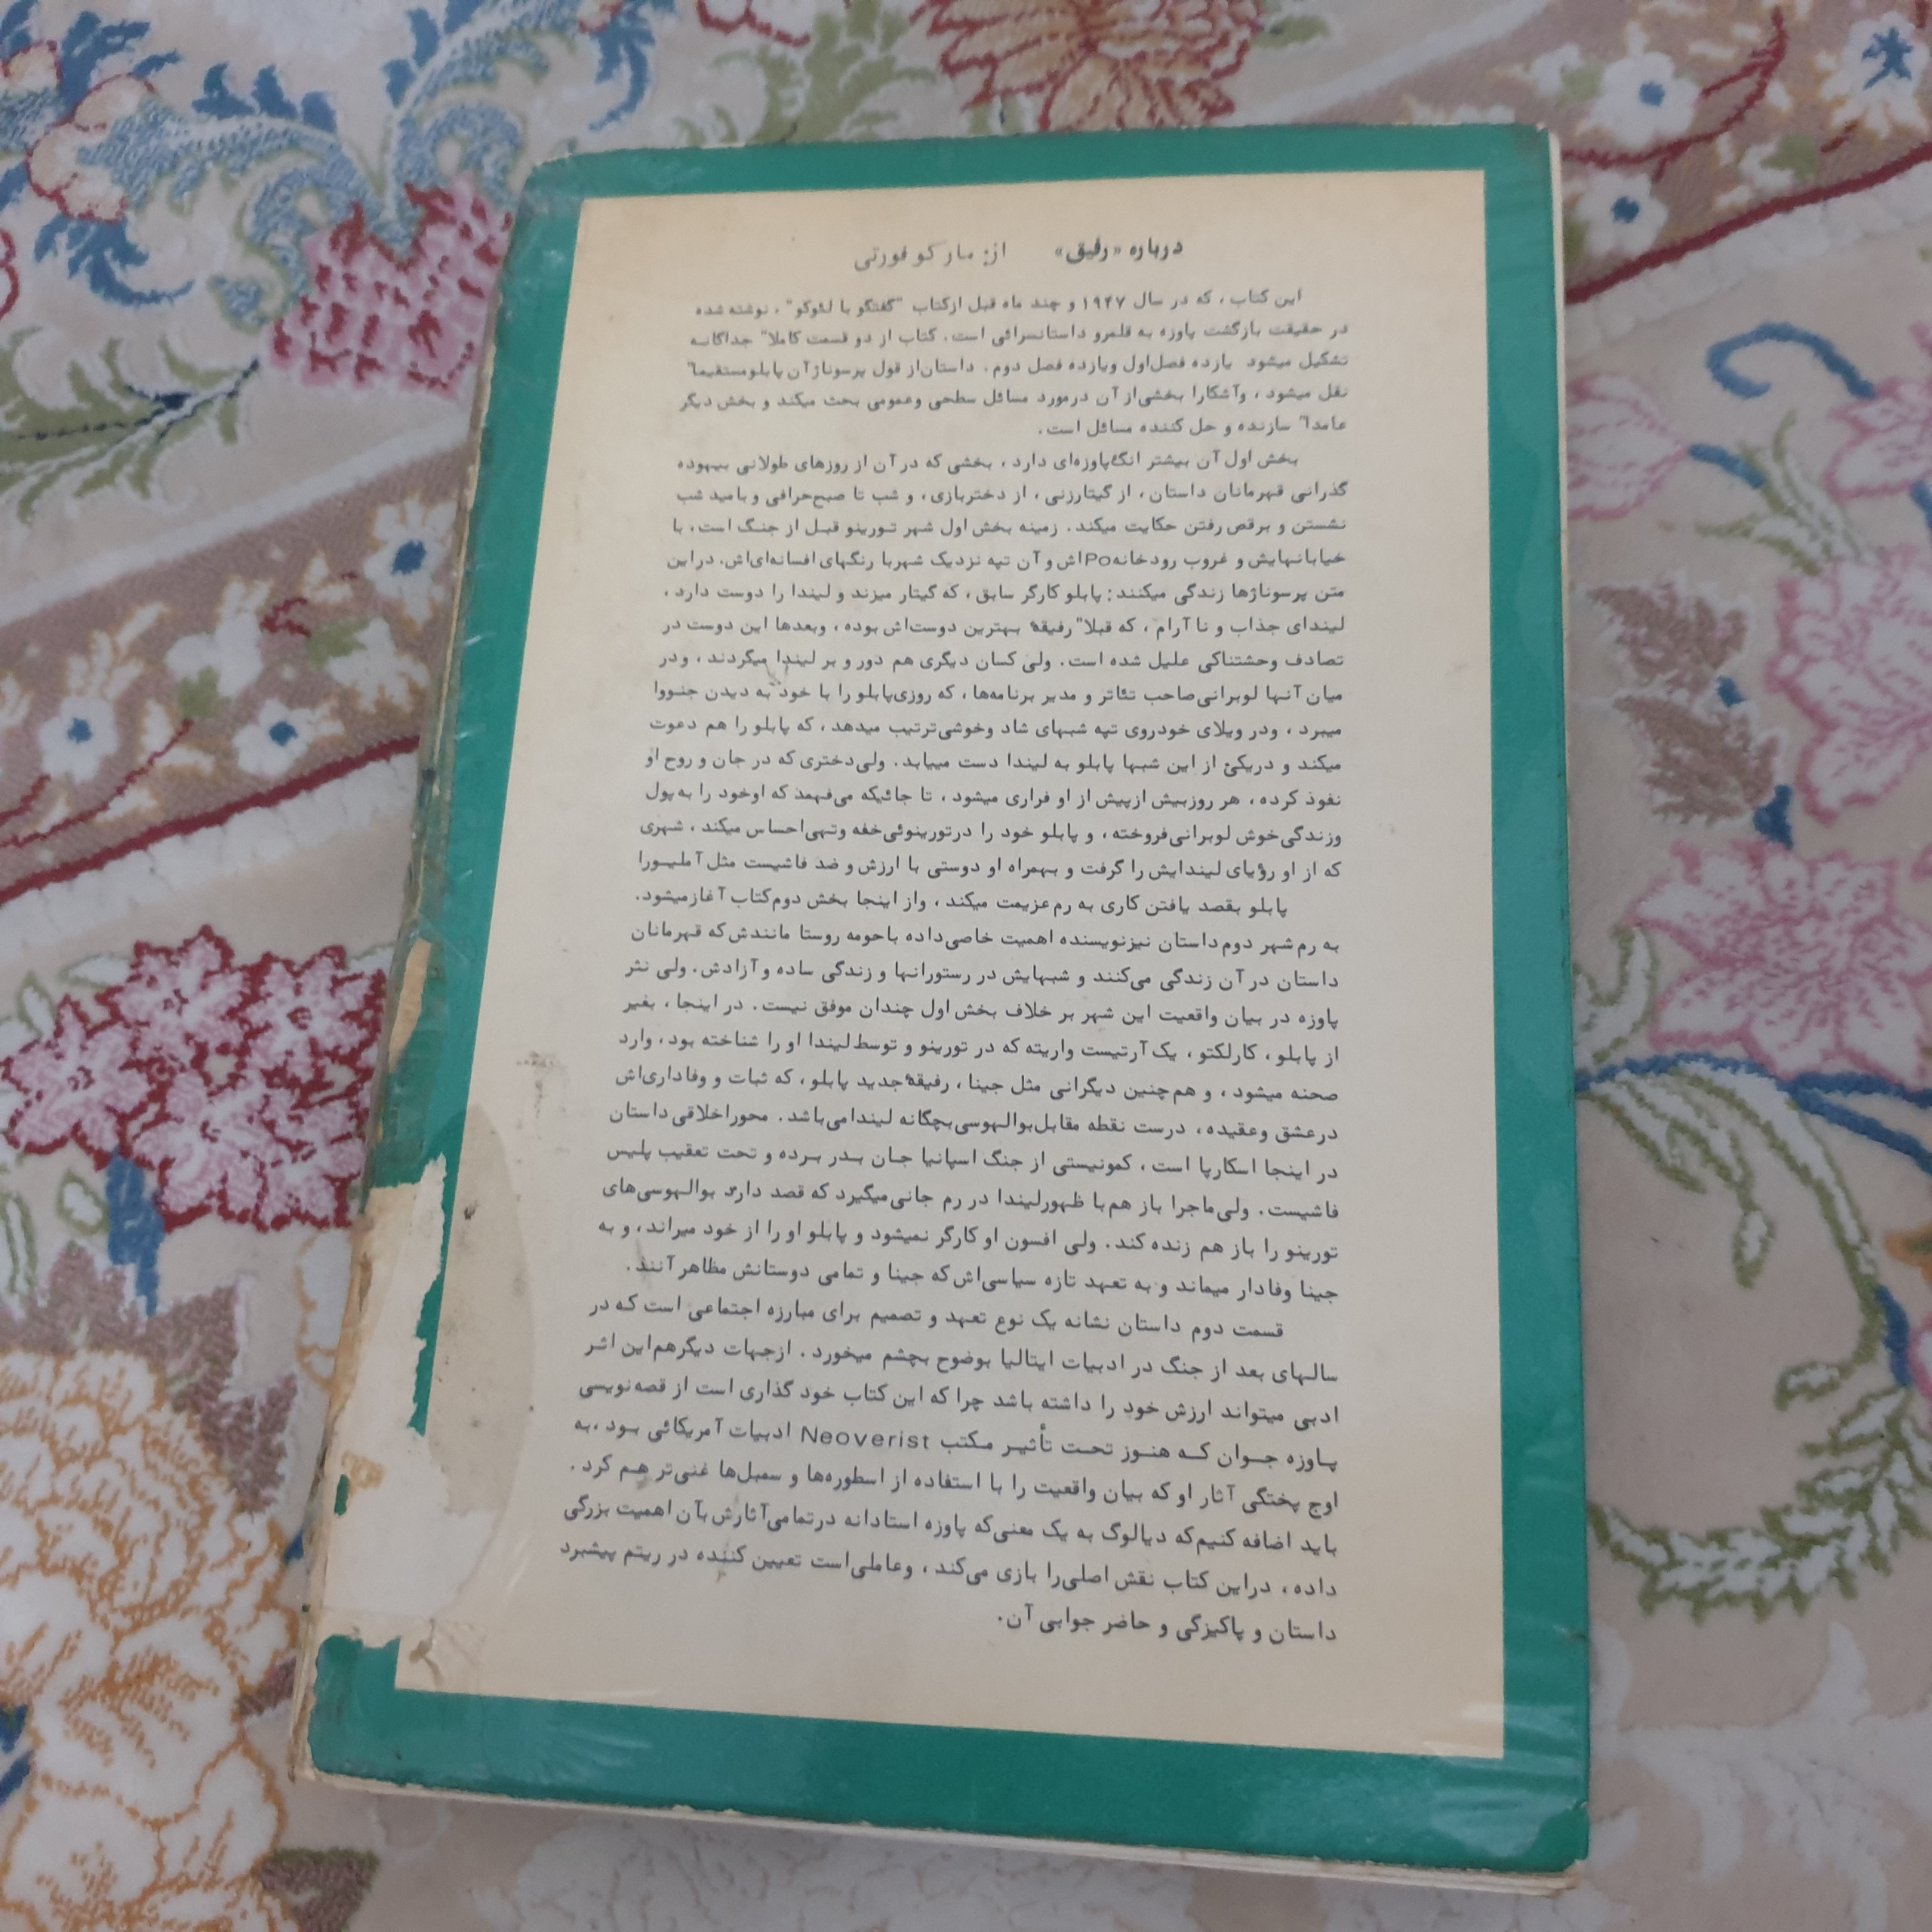 درباره «رفیق» از: مارکو فورتی
این کتاب، که در سال ۱۹۴۷ و چند ماه قبل ازکتاب "گفتگو با لئوکو"، نوشته شده
در حقیقت بازگشت پاوزه به قلمرو داستانسرائی است. کتاب از دو قسمت کاملا" جداگانه
تشکیل میشود یازده فصل‌اول ویازده فصل دوم. داستان‌از قول پرسوناژ آن پابلو مستقیما"
نقل میشود، وآشکارا بخشی‌از آن درمورد مسائل سطحی وعمومی بحث میکند و بخش دیگر
عامدا" سازنده و حل کننده مسائل است.
بخش اول آن بیشتر انگ‌پاوزه‌ای دارد، بخشی که در آن از روزهای طولانی بیهوده
گذرانی قهرمانان داستان، از گیتارزنی، از دختربازی، و شب تا صبح‌حرافی و بامید شب
نشستن و برقص رفتن حکایت میکند. زمینه بخش اول شهر تورینو قبل از جنگ است، با
خیابانهایش و غروب رودخانه‌Po‌اش و آن تپه نزدیک شهربا رنگهای افسانه‌ای‌اش. دراین
متن پرسوناژها زندگی میکنند: پابلو کارگر سابق، که گیتار میزند و لیندا را دوست دارد،
لیندای جذاب و نا آرام، که قبلا" رفیقهٔ بهترین دوست‌اش بوده، وبعدها این دوست در
تصادف وحشتناکی علیل شده است. ولی کسان دیگری هم دور و بر لیندا میگردند، ودر
میان آنها لوبرانی‌صاحب تئاتر و مدیر برنامه‌ها، که روزی‌پابلو را با خود به دیدن جنووا
میبرد، ودر ویلای خودروی تپه شبهای شاد وخوشی‌ترتیب میدهد، که پابلو را هم دعوت
میکند و دریکی از این شبها پابلو به لیندا دست مییابد. ولی‌دختری که در جان و روح او
نفوذ کرده، هر روزبیش ازپیش از او فراری میشود، تا جائیکه می‌فهمد که اوخود را به‌پول
وزندگی‌خوش لوبرانی‌فروخته، و پابلو خود را درتورینوئی‌خفه وتهی‌احساس میکند، شهری
که از او رؤیای لیندایش را گرفت و بهمراه او دوستی با ارزش و ضد فاشیست مثل آملیورا
پابلو بقصد یافتن کاری به رم عزیمت میکند، واز اینجا بخش دوم‌کتاب آغازمیشود.
به رم شهر دوم‌داستان نیزنویسنده اهمیت خاصی‌داده باحومه روستا مانندش‌که قهرمانان
داستان در آن زندگی می‌کنند و شبهایش در رستورانها و زندگی ساده و آزادش. ولی نثر
پاوزه در بیان واقعیت این شهر بر خلاف بخش اول چندان موفق نیست. در اینجا، بغیر
از پابلو، کارلکتو، یک آرتیست واریته که در تورینو و توسط لیندا او را شناخته بود، وارد
صحنه میشود، و هم‌چنین دیگرانی مثل جینا، رفیقهٔ جدید پابلو، که ثبات و وفاداری‌اش
درعشق وعقیده، درست نقطه مقابل‌بوالهوسی‌بچگانه لیندامی‌باشد. محوراخلاقی‌داستان
در اینجا اسکارپا است، کمونیستی از جنگ اسپانیا جان بدر برده و تحت تعقیب پلیس
فاشیست. ولی‌ماجرا باز هم‌با ظهورلیندا در رم جانی‌میگیرد که قصد دارد بوالهوسی‌های
تورینو را باز هم زنده کند. ولی افسون او کارگر نمیشود و پابلو او را از خود میراند، و به
جینا وفادار میماند و به تعهد تازه سیاسی‌اش‌که جینا و تمامی دوستانش مظاهر آنند.
قسمت دوم داستان نشانه یک نوع تعهد و تصمیم برای مبارزه اجتماعی است که در
سالهای بعد از جنگ در ادبیات ایتالیا بوضوح بچشم میخورد. ازجهات دیگرهم‌این اثر
ادبی میتواند ارزش خود را داشته باشد چرا که این کتاب خود گذاری است از قصه‌نویسی
پاوزه جوان که هنوز تحت تأثیر مکتب Neoverist ادبیات آمریکائی بود، به
اوج پختگی آثار او که بیان واقعیت را با استفاده از اسطوره‌ها و سمبل‌ها غنی‌تر هم کرد.
باید اضافه کنیم‌که دیالوگ به یک معنی‌که پاوزه استادانه درتمامی‌آثارش بآن اهمیت بزرگی
داده، دراین کتاب نقش اصلی‌را بازی می‌کند، وعاملی‌است تعیین کننده در ریتم پیشبرد
داستان و پاکیزگی و حاضر جوابی آن.